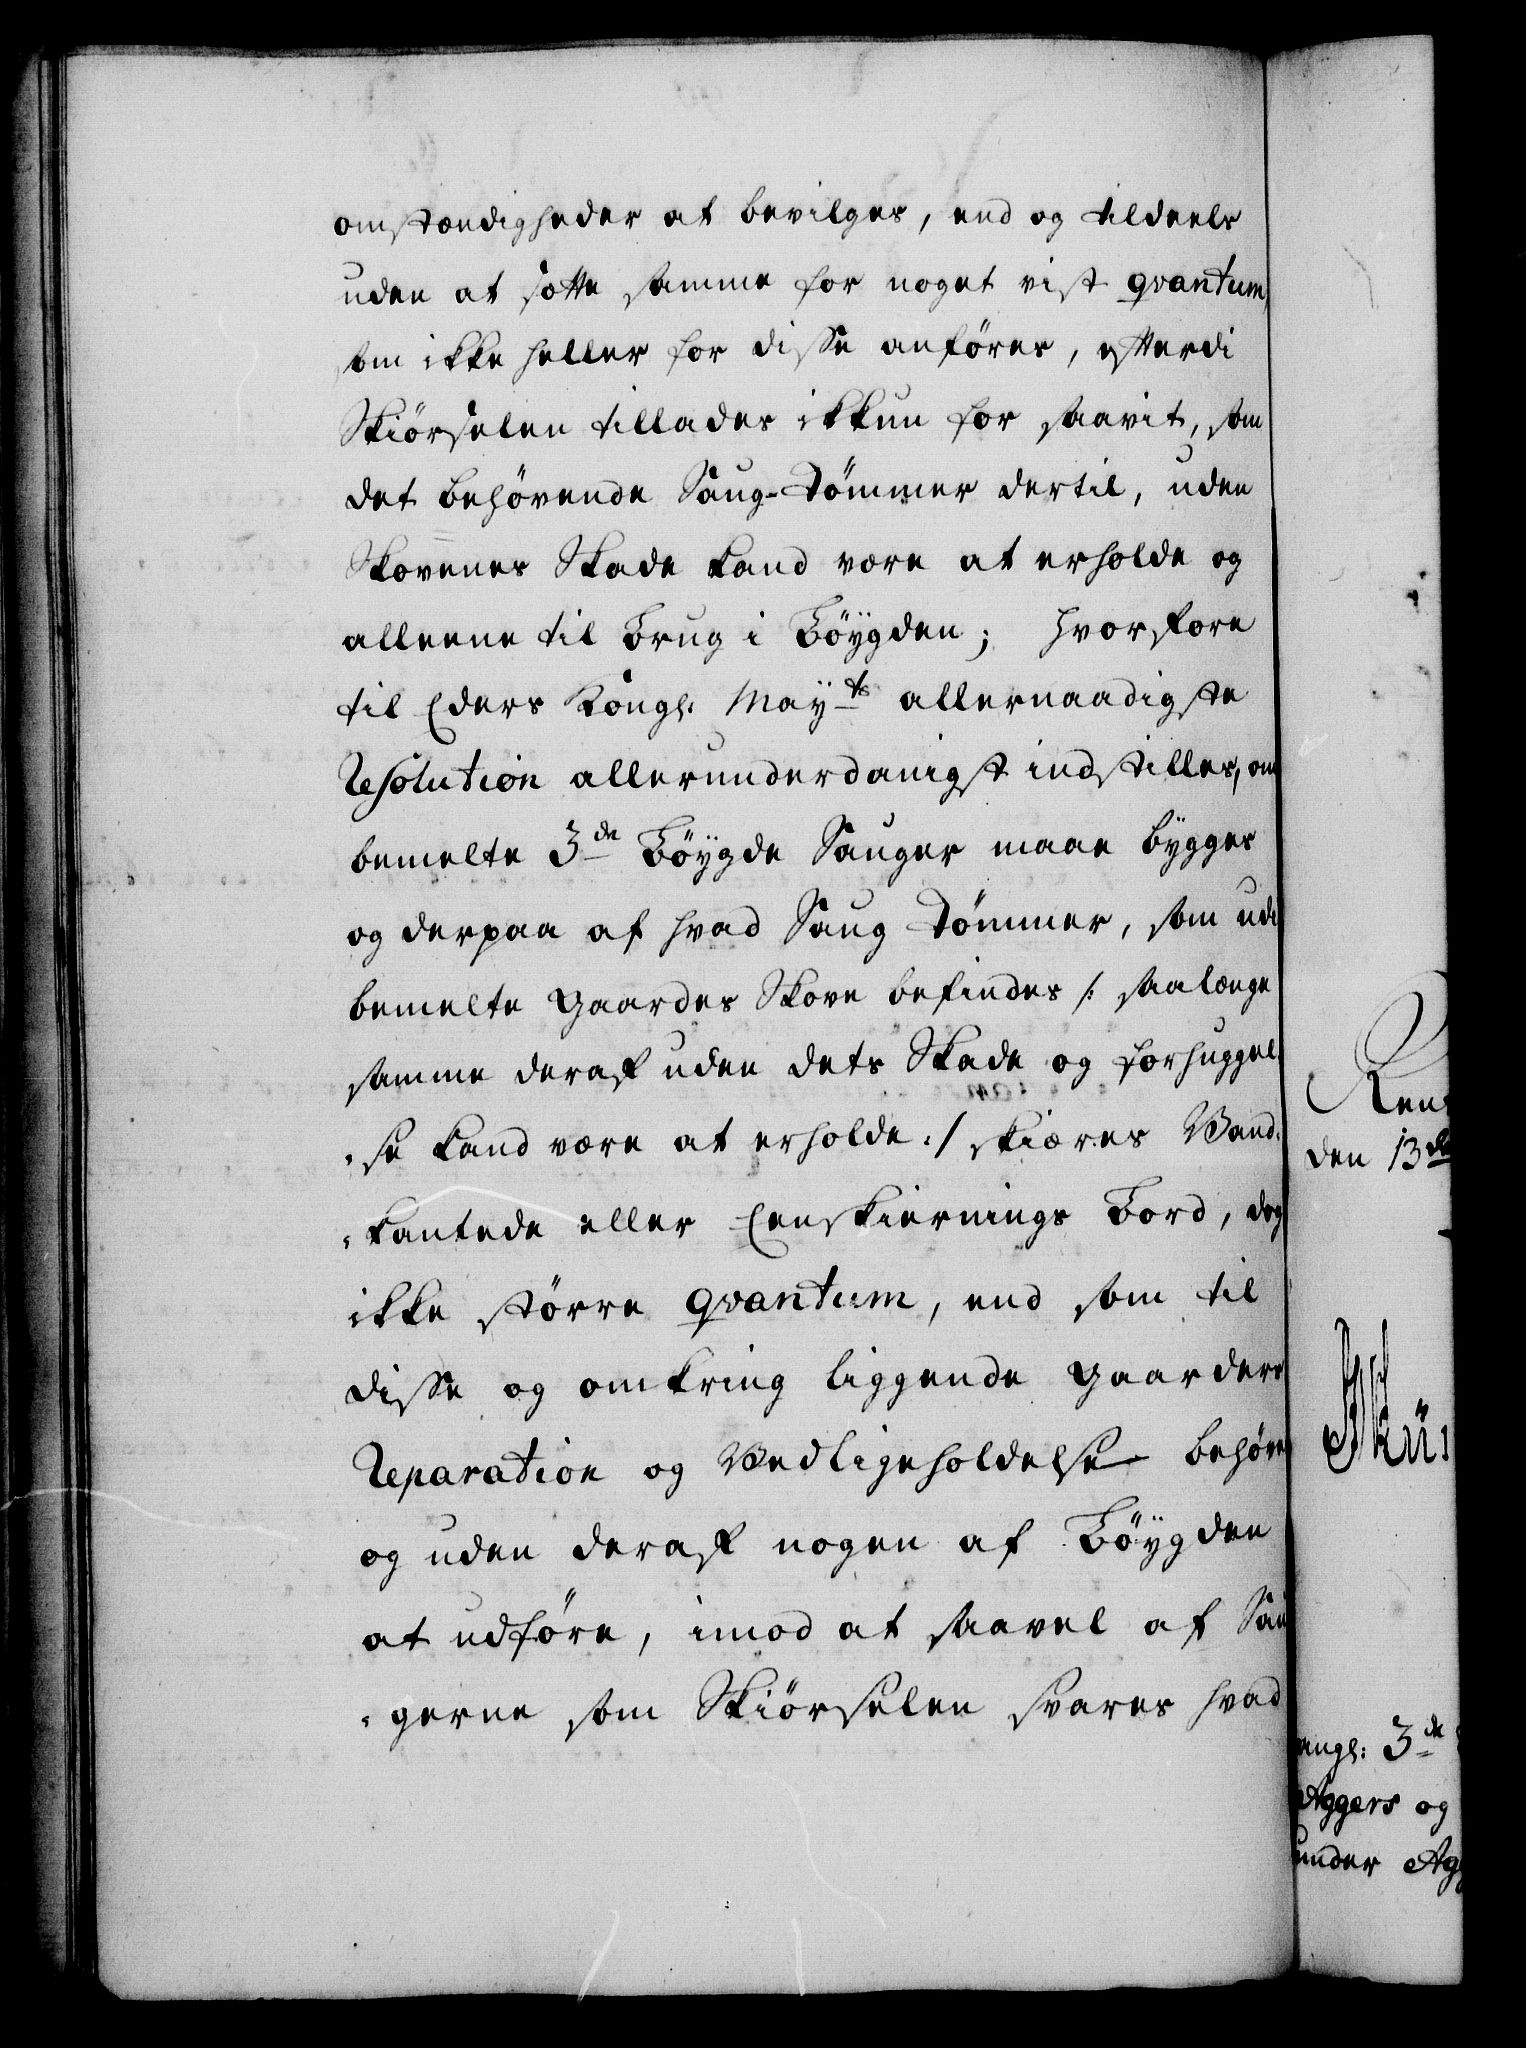 omstændigheder at bevilges, end og tildeels
uden at sætte samme for noget vist qvantum,
som ikke heller for disse anföres, efterdi
Skiörselen tillades ikkun for saavit, som
det behövende Saug-Tömmer dertil, uden
Skovenes Skade kand være at erholde og
alleene til Brug i Böygden; hvorfore
til Eders Kongl: Mayts allernaadigste
Resolution allerunderdanigst indstilles, om
bemelte 3de Böygde Sauger maae bygges
og derpaa af hvad Saug Tömmer, som udi
bemelte Gaardes Skove befindes /: saalænge
samme deraf uden dets Skade og forhuggel-
-se kand være at erholde :/ skiæres Vand-
-kantede eller Eenskiernings Bord, dog
ikke större qvantum, end som til
disse og omkring liggende Gaarders
Reparation og Vedligeholdelse behöve
og uden deraf nogen af Böygden
at udföre, imod at saavel af Sau
-gerne som Skiörselen svares hvad
Ren
den 13de
angl: 3de
Aggers og
under Ag